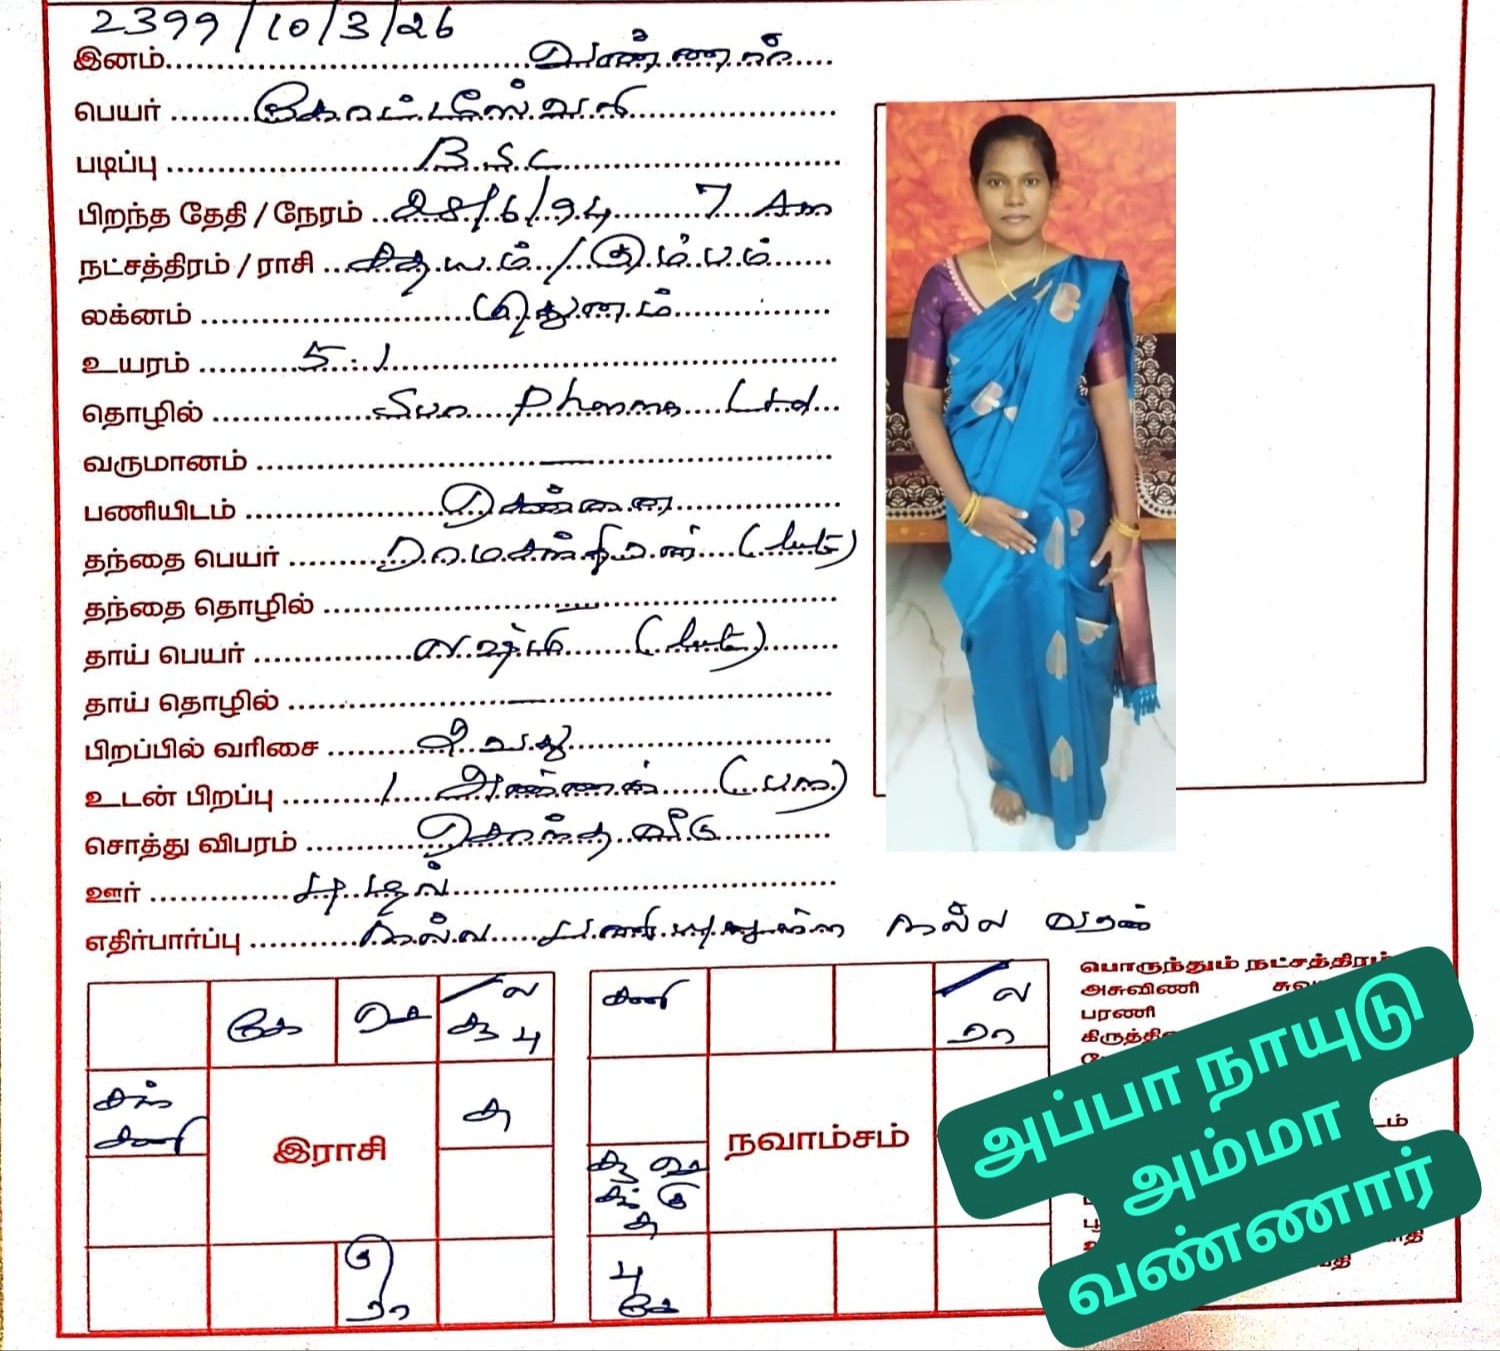 2399/10/3/26
இனம் வண்ணார்
பெயர் கோட்டீஸ்வரி
படிப்பு B.Sc
பிறந்த தேதி / நேரம் 28/6/94 7 Am
நட்சத்திரம் / ராசி சதயம் / கும்பம்
லக்னம் மிதுனம்
உயரம் 5.1
தொழில் Sun Pharma Ltd
வருமானம் —
பணியிடம் சென்னை
தந்தை பெயர் ராமச்சந்திரன் (late)
தந்தை தொழில் —
தாய் பெயர் லஷ்மி (late)
தாய் தொழில் —
பிறப்பில் வரிசை 2 வது
உடன் பிறப்பு 1 அண்ணன்
சொத்து விபரம் சொந்த வீடு
ஊர்
எதிர்பார்ப்பு நல்ல பணியிலுள்ள நல்ல வரன்
கே செ ல சூ பு
சனி ல ரா
சனி சு
இராசி நவாம்சம்
சூ செ சந் கு சு
கு ரா
பு கே
பொருந்தும் நட்சத்திரம்
அசுவினி
பரணி
அப்பா நாயுடு
அம்மா
வண்ணார்